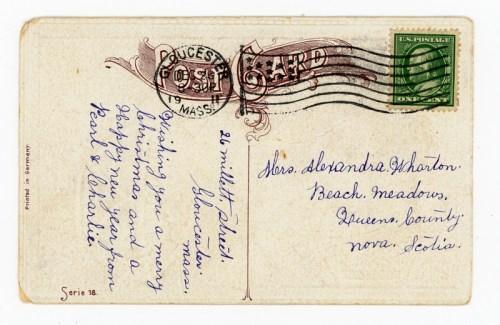 POST CARD
GLOUCESTER
DEC
19 11
MASS.
U.S. POSTAGE
ONE CENT
26 Millett Street.
Gloucester.
Mass.
Wishing you a merry
Christmas and a
Happy new year from
Pearl & Charlie.
Mrs. Alexandra. Wharton.
Beach. Meadows.
Queens. County.
Nova. Scotia.
Printed in Germany
Serie 18.